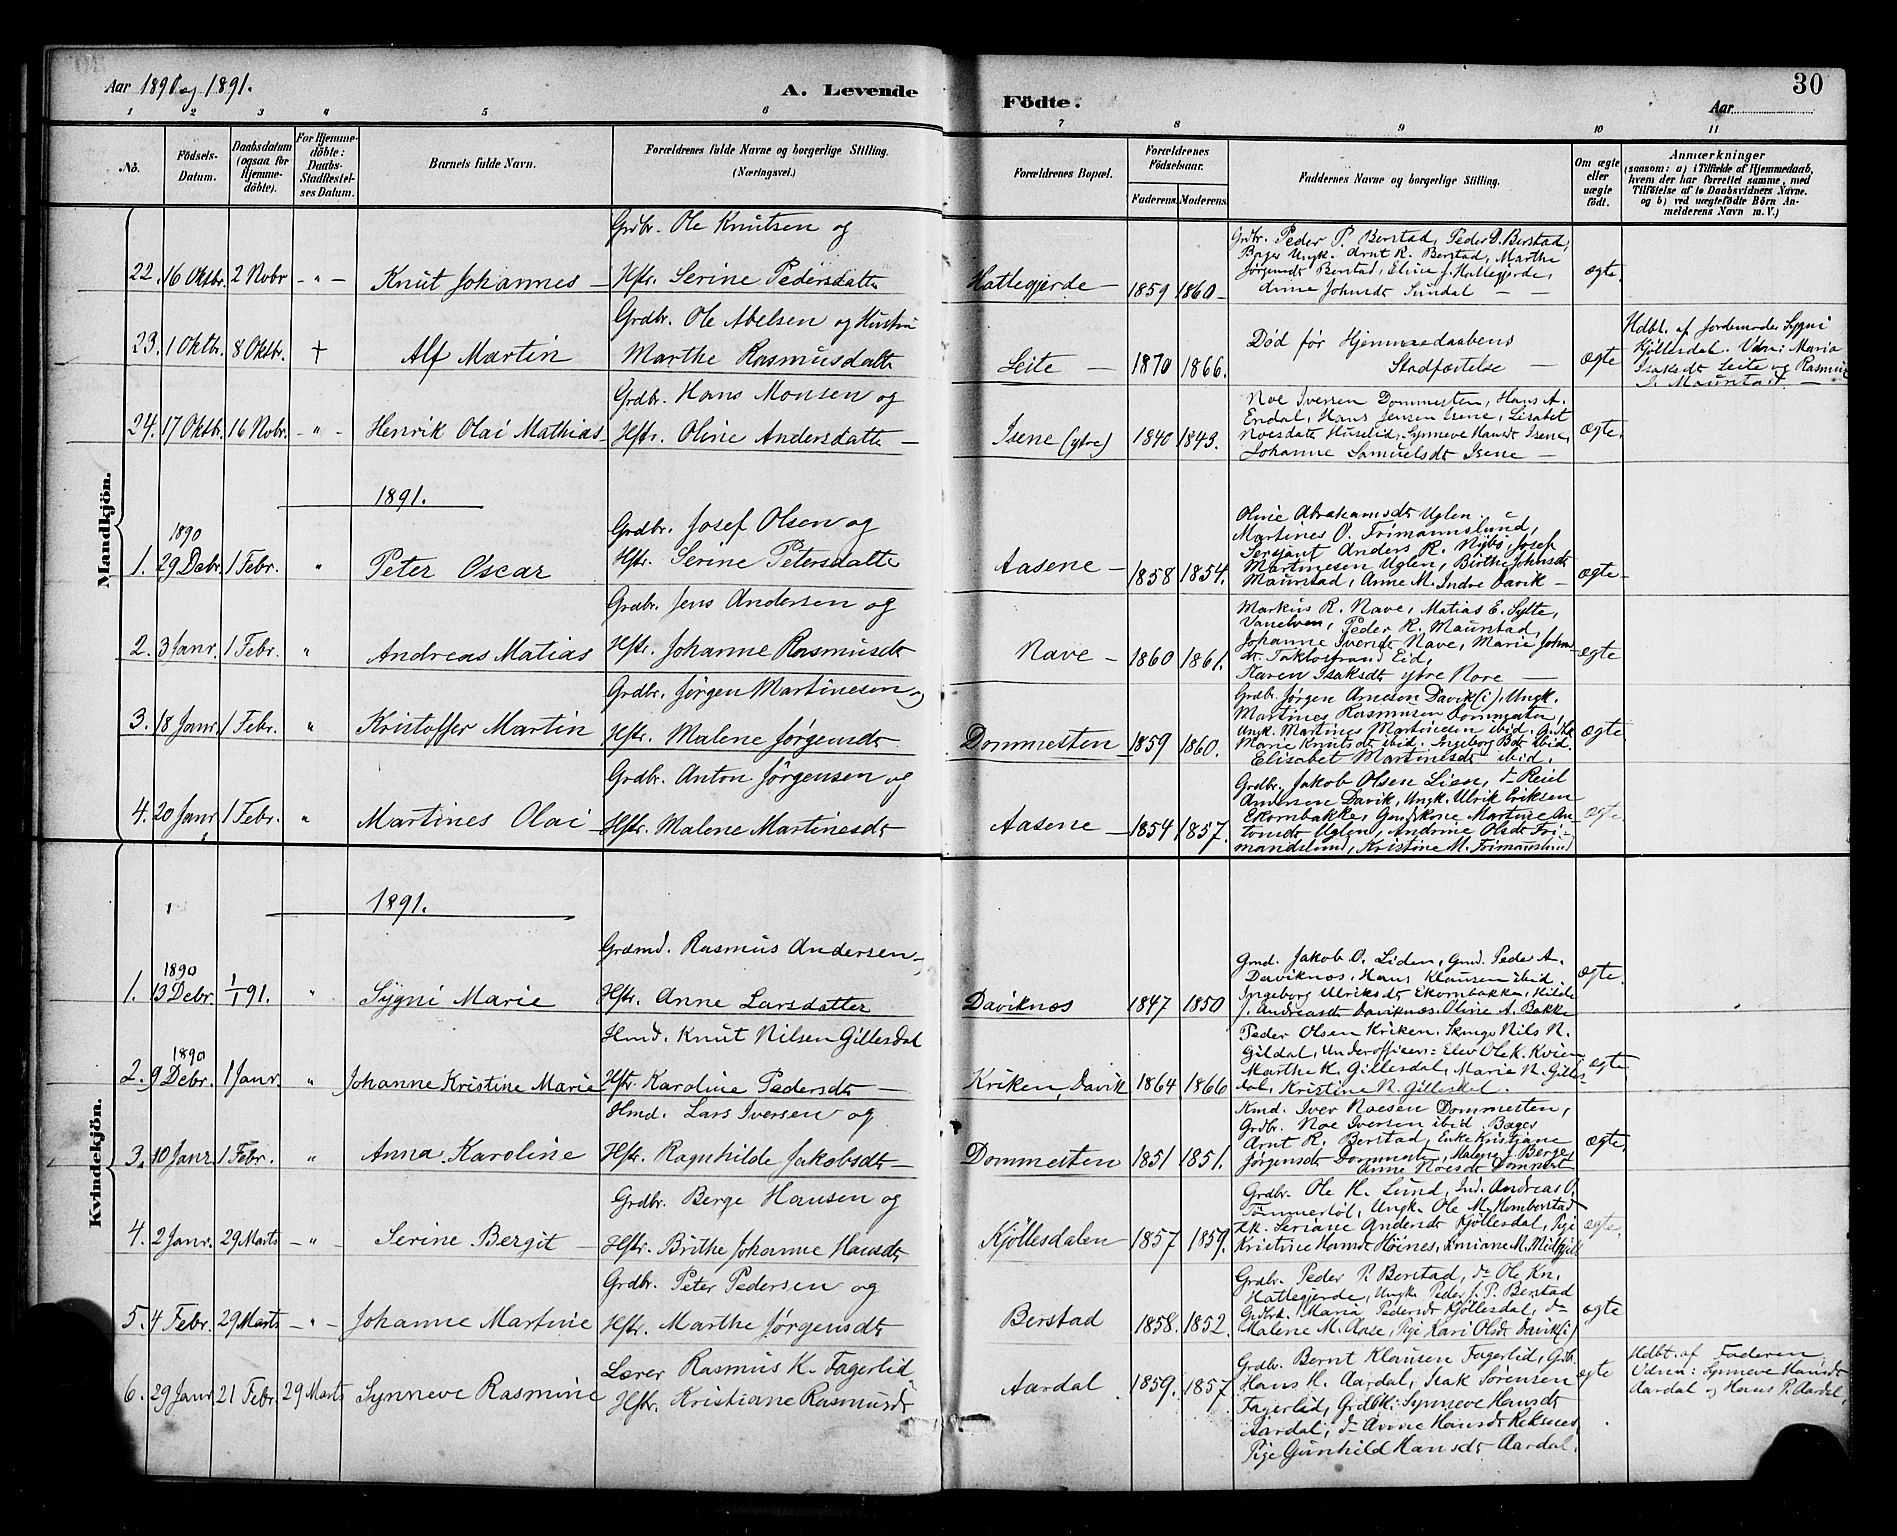 Aar 1890 og 1891. A. Levende Födte. Aar 30
1 2 3 4 5 6 7 8 9 10 11
No. Födsels-Datum. Daabsdatum (ogsaa for Hjemme-döbte). For Hjemme-döbte: Daabs-Stadfæstel-ses Datum. Barnets fulde Navn. Forældrenes fulde Navne og borgerlige Stilling. (Næringsvei.) Forældrenes Bopæl. Forældrenes Födselsaar. Faderens. Moderens. Faddernes Navne og borgerlige Stilling. Om ægte eller uægte födt. Anmærkninger (saasom: a) i Tilfælde af Hjemmedaab, hvem der har forrettet samme, med Tilföielse af to Daabsvidners Navne, og b) ved uægtefödte Börn An-melderens Navn m. V.)
Mandkjön.
Grdbr. Ole Knutsen og
22. 16 Oktbr. 2 Novbr. - " - Knut Johannes - Hstr. Serine Pedersdatte Hattegjerde - 1859 1860 - ægte
Grdbr. Peder P. Berstad, Peder D. Berstad,
Bager Ungk. Arnt R. Berstad, Marthe
Jørgensdt Berstad, Eline J. Hattegjerde,
Anne Johnsdt Sundal - -
Grdbr. Ole Abelsen og Hustru
23. 1 Oktbr. 8 Oktbr. + Alf Martin Marthe Rasmusdatte Leite - 1870 1866. ægte
Død før Hjemmedaabens
Stadfæstelse -
Hdbt. af Jordemoder Sygni
Kjöllesdal. Vidni: Maria
Isaksdt Leite og Rasmine
J. Maurstad -
Grdbr. Hans Monsen og
24. 17 Oktbr. 16 Novbr. - " - Henrik Olai Mathias Hstr. Oline Andersdatte - Isene (ytre) 1840 1843. ægte.
Noe Iversen Dommesten, Hans A.
Endal, Hans Jensen Isene, Lisabet
Noesdatte Huselid, Synneve Hansdt Isene,
Johanne Samuelsdt Isene -
1891.
Grdbr. Josef Olsen og
1. 1890 29 Debr. 1 Febr. " Peter Oscar Hstr. Serine Petersdatte Aasene - 1858 1854. ægte -
Oline Abrahamsdt Uglen.
Martines O. Frimannslund,
Sersjant Anders R. Nybø, Josef
Martinesen Uglen, Birthe Johnsdt
Maurstad, Anne M. Indre Davik -
Grdbr. Jens Andersen og
2. 3 Janr. 1 Febr. " Andreas Matias Hstr. Johanne Rasmusdt Nave - 1860 1861. ægte
Markus R. Nave, Matias E. Sylte,
Vanelven, Peder R. Maurstad,
Johanne Iversdt Nave, Marie Johns-
dt Taklostrand Eid,
Karen Isaksdt ytre Nore -
Grdbr. Jørgen Martinesen og
3. 18 Janr. 1 Febr. " Kristoffer Martin Hstr. Malene Jørgensdt Dommesten 1859 1860. ægte.
Grdbr. Jørgen Arnesen Davik (i), Ungk.
Martines Rasmusen Dommesten,
Ungk. Martines Martinesen ibid,
Marie Knutsdt ibid. Ingeborg Bdt ibid.
Elisabet Martinesdt ibid.
Grdbr. Anton Jørgensen og
4. 20 Janr. 1 Febr. " Martines Olai - Hstr. Malene Martinesdt Aasene - 1854 1857. ægte.
Grdbr. Jakob Olsen Lien, do Reiel
Andersen Davik, Ungk. Ulrik Eriksen
Ekornbakke, Gmdskone Martine An-
tonsdt Uglen, Andrine Olsdt Fri-
mandslund, Kristine M. Frimanslund
Kvindekjön.
1891.
Grdmd. Rasmus Andersen -,
1. 1890 13 Debr. 1/1 91. " Sygni Marie Hstr. Anne Larsdatter Daviknes 1847 1850 ægte.
Gmd. Jakob O. Liden, Gmd. Peder A.
Daviknes. Hans Klausen ibid
Ingeborg Ulriksdt Ekornbakken, Hilde
J. Andreasdt Daviknes. Oline A. Bakke
Hmd. Knut Nilsen Gillesdal
2. 1890 9 Debr. 1 Janr. " Johanne Kristine Marie Hstr Karoline Pedersdt - Kriken, Davik 1864 1866 ægte.
Peder Olsen Kriken. Nils N.
Gildal, Underofficers=Elev Ole K. Kvien
Marthe K. Gillesdal, Marie N. Gilles-
dal, Kristine N. Gillesdal.
Hmd. Lars Iversen og
3. 10 Janr. 1 Febr. " Anna Karoline Hstr. Ragnhilde Jakobsdt - Dommesten 1851 1851. ægte.
Kmd. Iver Noesen Dommesten,
Grdbr. Noe Iversen ibid. Bager
Arnt R. Berstad, Enke Kristiane
Jørgensdt Dommesten, Malene J. Berge,
Anne Noesdt Dommest
Grdbr. Berge Hansen og
4. 2 Janr. 29 Marts - " - Serine Bergit - Hstr. Brithe Johanne Hansdt Kjöllesdalen 1857 1859. ægte.
Grdbr. Ole H. Lund, Ind. Andreas O.
Ungk. Ole M. Homborstad
Seriane Andersdt Kjöllesdal, Pige
Kristine Hansdt Höines,
Grdbr. Peter Pedersen og
5. 4 Febr. 29 Marts - " - Johanne Martine Hstr. Marthe Jørgensdt Berstad 1858. 1852. ægte
Grdbr. Peder P. Berstad, do Ole Kn.
Hattegjerde, Ungk. Peder J. P. Berstad
Maria Pedersdt Kjöllesdal, do
Malene M. Aase, Pige Kari Olsdt Davik (i)
Lærer Rasmus K. Fagerlid
6. 29 Janr 21 Febr. 29 Marts Synneve Rasmine Hstr. Kristiane Rasmusdt Aardal 1859. 1857. ægte
Grdbr. Bernt Klausen Fagerlid, Gdb.
Hans H. Aardal, Isak Sørensen
Fagerlid, Synneve Hansdt
Aardal, do Anne Hansdt Reksnes
Pige Gunhild Hansdt Aardal.
Hdbt. af Faderen
Vidner: Synneve Hansdt
Aardal og Hans P. Aardal